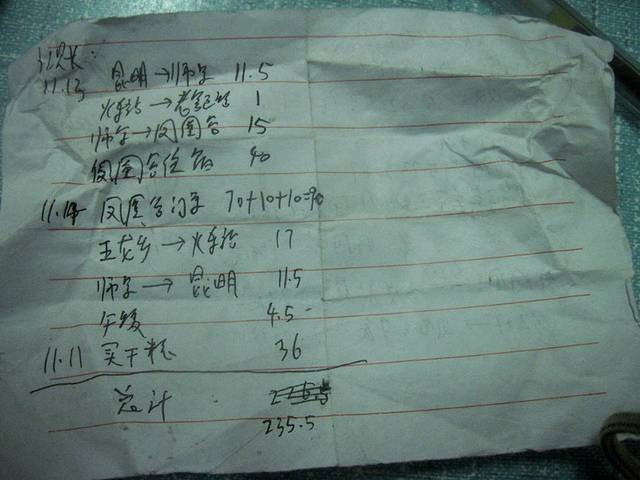 11.13 昆明→师宗 11.5
火车站→ 1
师宗→凤凰谷 15
凤凰谷住宿 40
11.14 凤凰谷门票 70+10+10=90
五龙乡→火车站 17
师宗→昆明 11.5
午餐 4.5
11.11 买干粮 36
总计
235.5